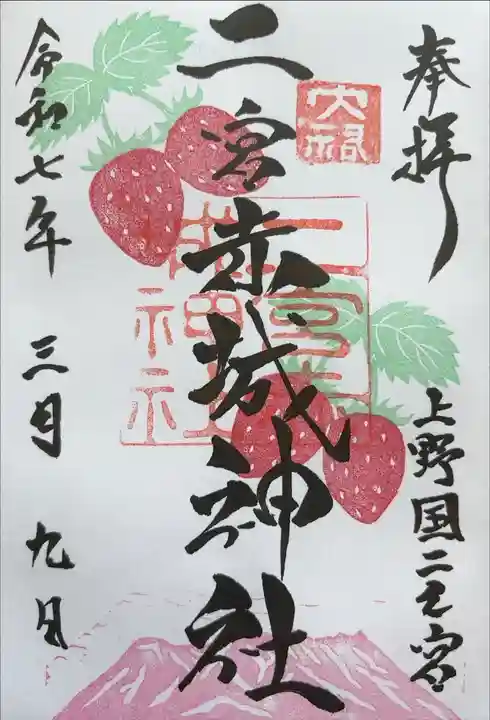 奉拝
上野国二之宮
二宮赤城神社
大福
二宮赤城神社
令和七年 三月 九日